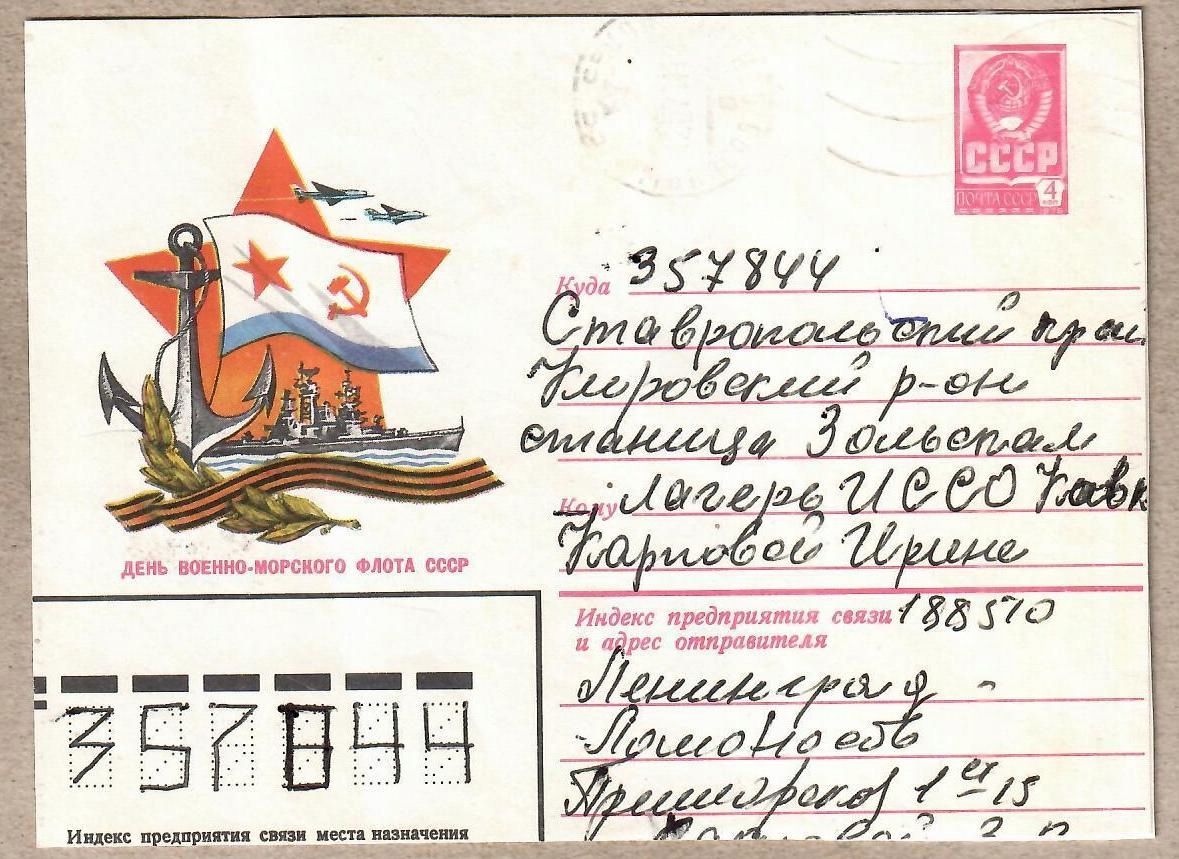 СССР
ПОЧТА СССР
4
коп
Куда 357844
Ставропольский край
Кировский р-он
станица Зольская
Кому лагерь ИССО Кавк
Карповой Ирине
ДЕНЬ ВОЕННО-МОРСКОГО ФЛОТА СССР
Индекс предприятия связи 188510
и адрес отправителя
Ленинград -
Ломоносов
Приморская 1
357844
Индекс предприятия связи места назначения